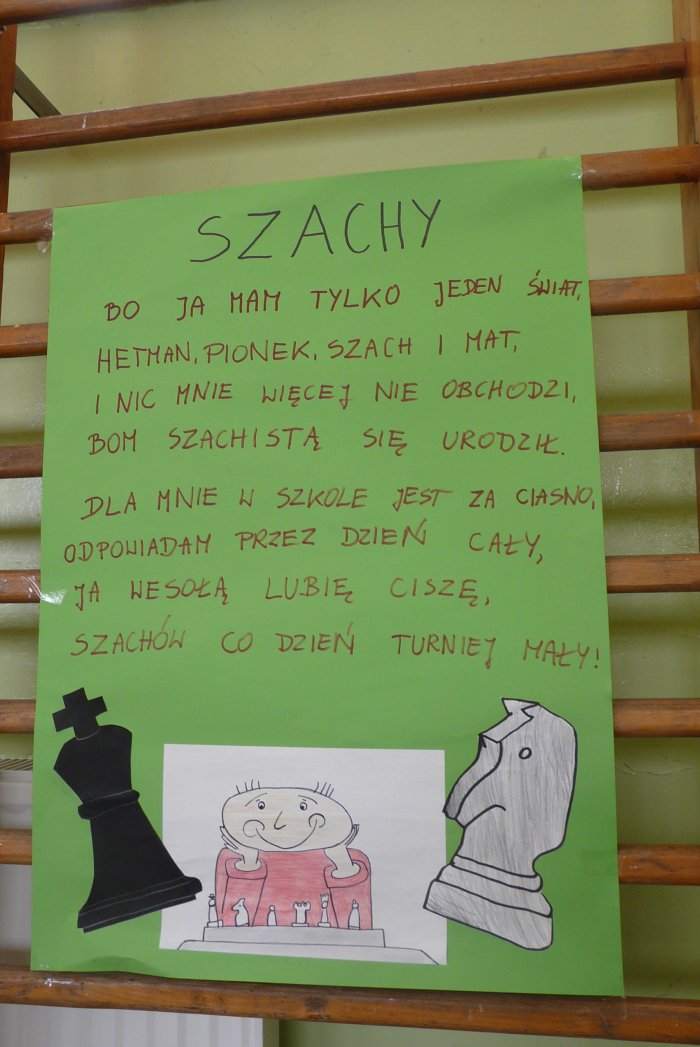 SZACHY
BO JA MAM TYLKO JEDEN ŚWIAT,
HETMAN, PIONEK, SZACH I MAT,
I NIC MNIE WIĘCEJ NIE OBCHODZI,
BOM SZACHISTĄ SIĘ URODZIŁ.
DLA MNIE W SZKOLE JEST ZA CIASNO,
ODPOWIADAM PRZEZ DZIEŃ CAŁY,
JA WESOŁĄ LUBIĘ CISZĘ,
SZACHÓW CO DZIEŃ TURNIEJ MAŁY!